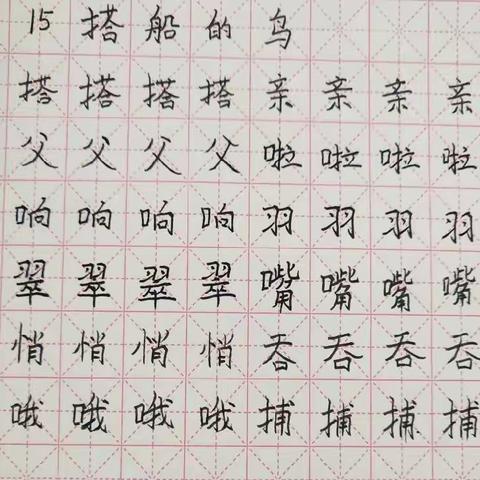 15 搭船的鸟
搭搭搭搭亲亲亲亲
父父父父啦啦啦啦
响响响响羽羽羽羽
翠翠翠翠嘴嘴嘴嘴
悄悄悄悄吞吞吞吞
哦哦哦哦捕捕捕捕